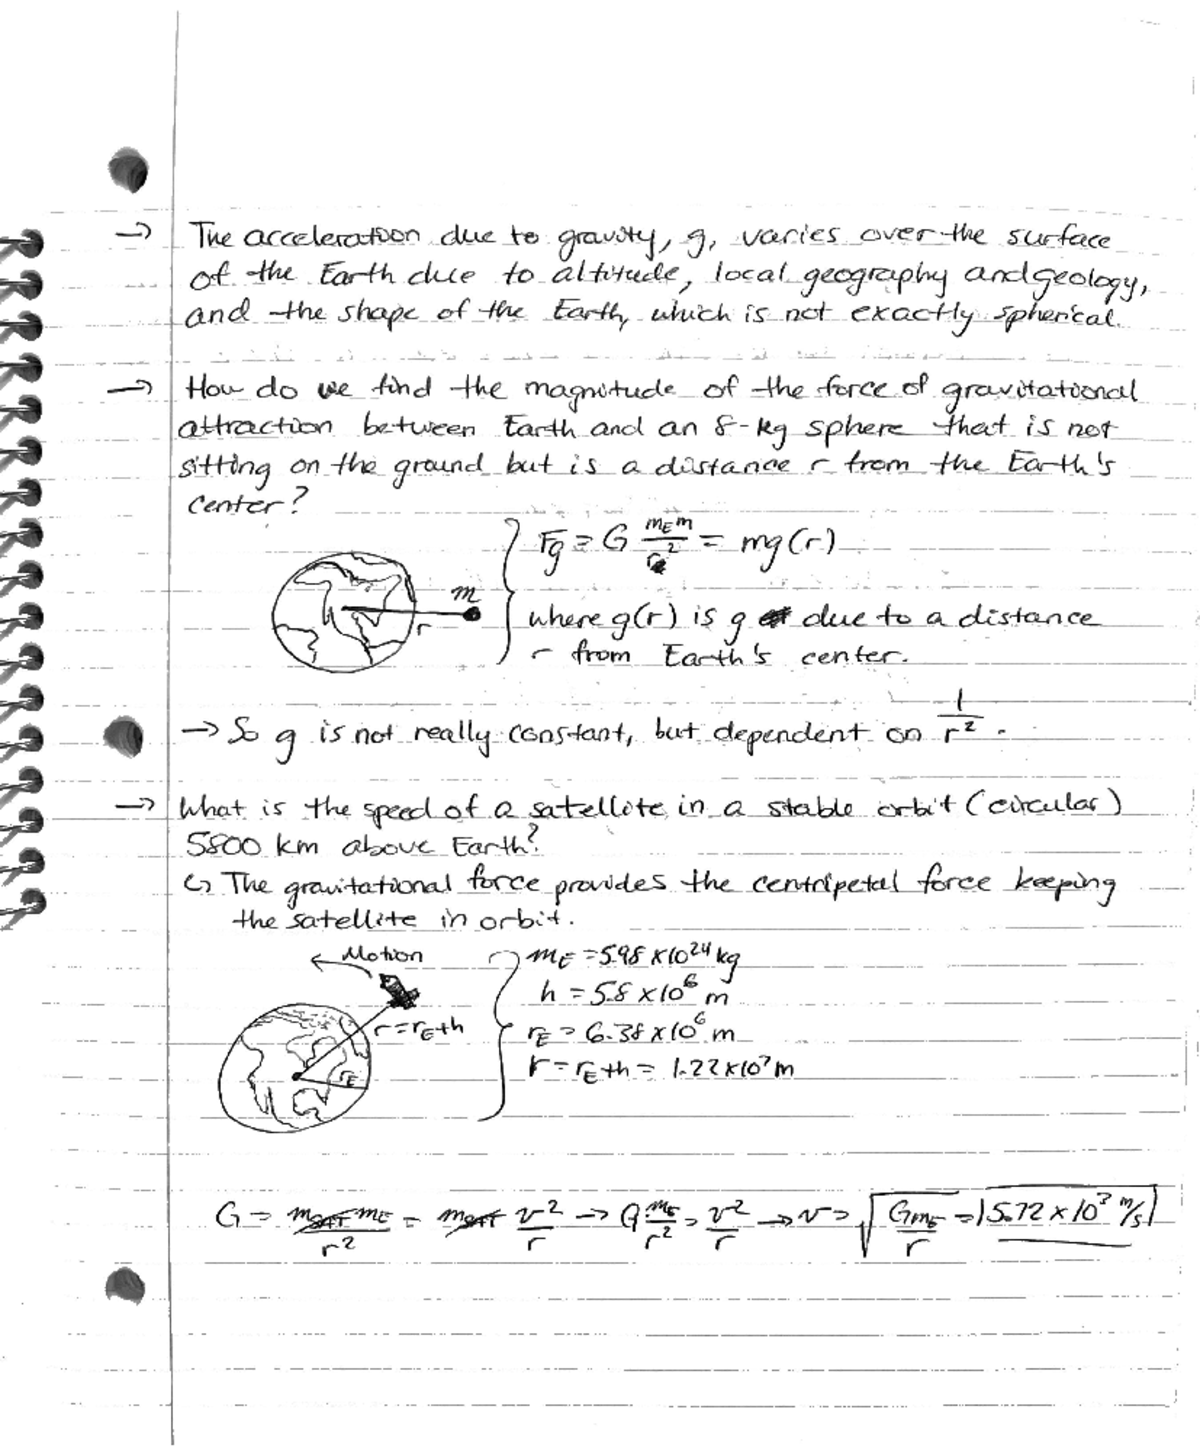 → The acceleration due to gravity, g, varies over the surface
of the Earth due to altitude, local geography and geology,
and the shape of the Earth, which is not exactly spherical.
→ How do we find the magnitude of the force of gravitational
attraction between Earth and an 8-kg sphere that is not
sitting on the ground but is a distance r from the Earth's
center?
Fg = G mEm/r² = mg(r)
m
r
where g(r) is g due to a distance
r from Earth's center.
→ So g is not really constant, but dependent on 1/r².
→ What is the speed of a satellite in a stable orbit (circular)
5800 km above Earth?
↳ The gravitational force provides the centripetal force keeping
the satellite in orbit.
← Motion
mE = 5.98 x 10²⁴ kg
h = 5.8 x 10⁶ m
r = rE+h
rE = 6.38 x 10⁶ m
r = rE + h = 1.22 x 10⁷ m
rE
G = mSAT mE / r² = mSAT v²/r → G mE/r² = v²/r → v = √(GmE/r) = 5.72 x 10³ m/s